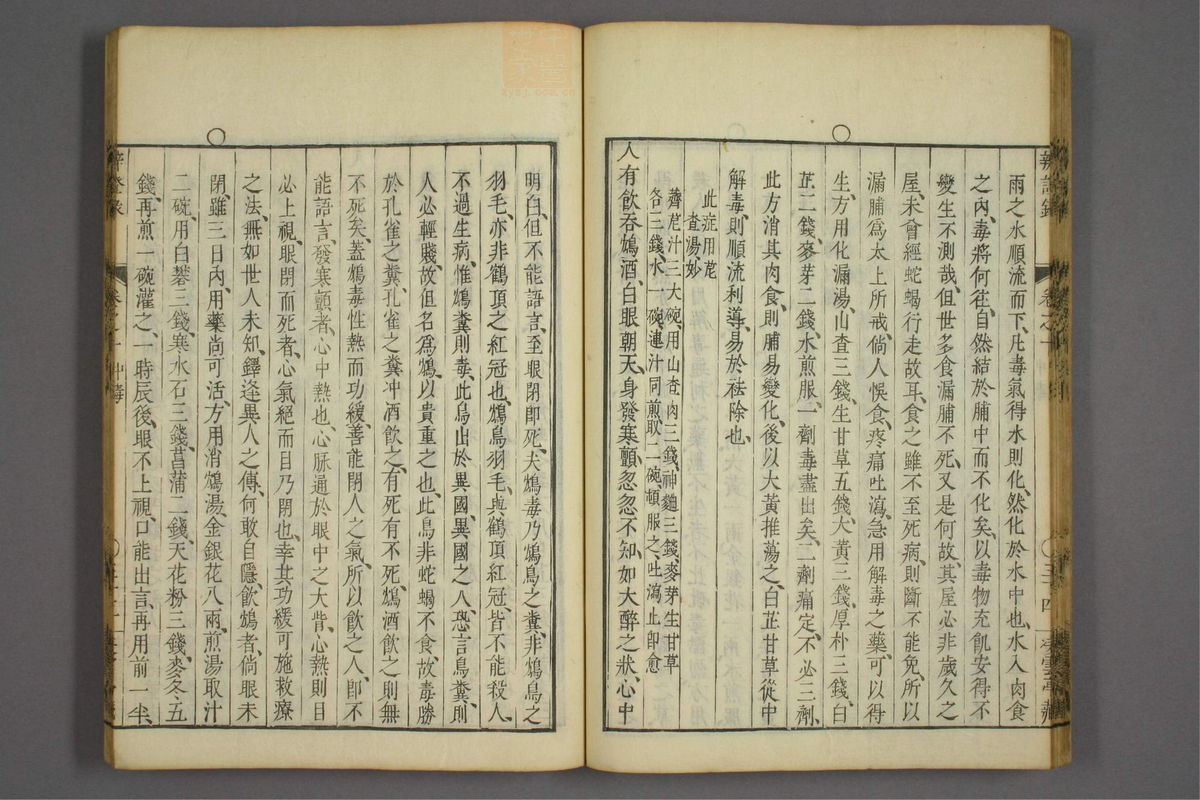 雨之水順流而下、凡毒氣得水則化、然化於水中也、水入肉食
之內、毒將何在、自然結於脯中而不化矣、以毒物充飢、安得不
變生不測哉、但世多食漏脯不死、又是何故、其屋必非歲久之
屋、未曾經蛇蝎行走故耳、食之雖不至死、病則斷不能免、所以
漏脯爲太上所戒、倘人悞食、疼痛吐瀉、急用解毒之藥、可以得
生、方用化漏湯、山查三錢、生甘草五錢、大黃三錢、厚朴三錢、白
芷二錢、麥芽二錢、水煎服、一劑毒盡出矣、二劑痛定、不必三劑、
此方消其肉食、則脯易變化、後以大黃推蕩之、白芷甘草從中
解毒、則順流利導、易於祛除也、
此症用薺
查湯妙
薺苨汁三大碗、用山查肉三錢、神麯三錢、麥芽生甘草
各三錢、水一碗、連汁同煎取二碗、頓服之、吐瀉止即愈
人有飲吞鴆酒、白眼朝天、身發寒顫、忽忽不知、如大醉之狀、心中
明白、但不能語言、至眼閉即死、夫鴆毒乃鴆鳥之糞、非鴆鳥之
羽毛、亦非鶴頂之紅冠也、鴆鳥羽毛、與鶴頂紅冠、皆不能殺人、
不過生病、惟鴆糞則毒、此鳥出於異國、異國之人、恐言鳥糞、則
人必輕賤、故但名爲鴆、以貴重之也、此鳥非蛇蝎不食、故毒勝
於孔雀之糞、孔雀之糞冲酒飲之、有死有不死、鴆酒飲之則無
不死矣、蓋鴆毒性熱而功緩、善能閉人之氣、所以飲之人、即不
能語言、發寒顫者、心中熱也、心脉通於眼中之大眥、心熱則目
必上視、眼閉而死者、心氣絕而目乃閉也、幸其功緩可施救療
之法、無如世人未知、鐸逢異人之傳、何敢自隱、飲鴆者、倘眼未
閉、雖三日內、用藥尚可活、方用消鴆湯、金銀花八兩煎湯取汁
二碗、用白礬三錢、寒水石三錢、菖蒲二錢、天花粉三錢、麥冬五
錢、再煎一碗灌之、一時辰後、眼不上視、口能出言、再用前一半